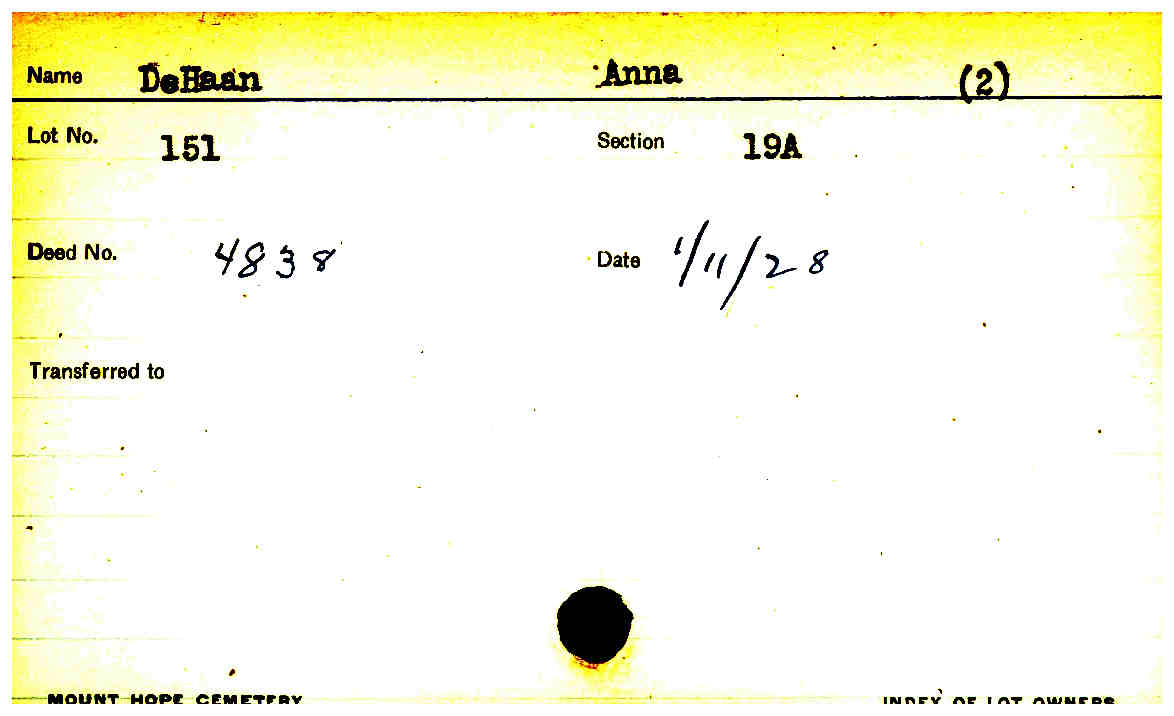 Name DeHaan Anna (2)
Lot No. 151 Section 19A
Deed No. 4838 Date 1/11/28
Transferred to
MOUNT HOPE CEMETERY INDEX OF LOT OWNERS